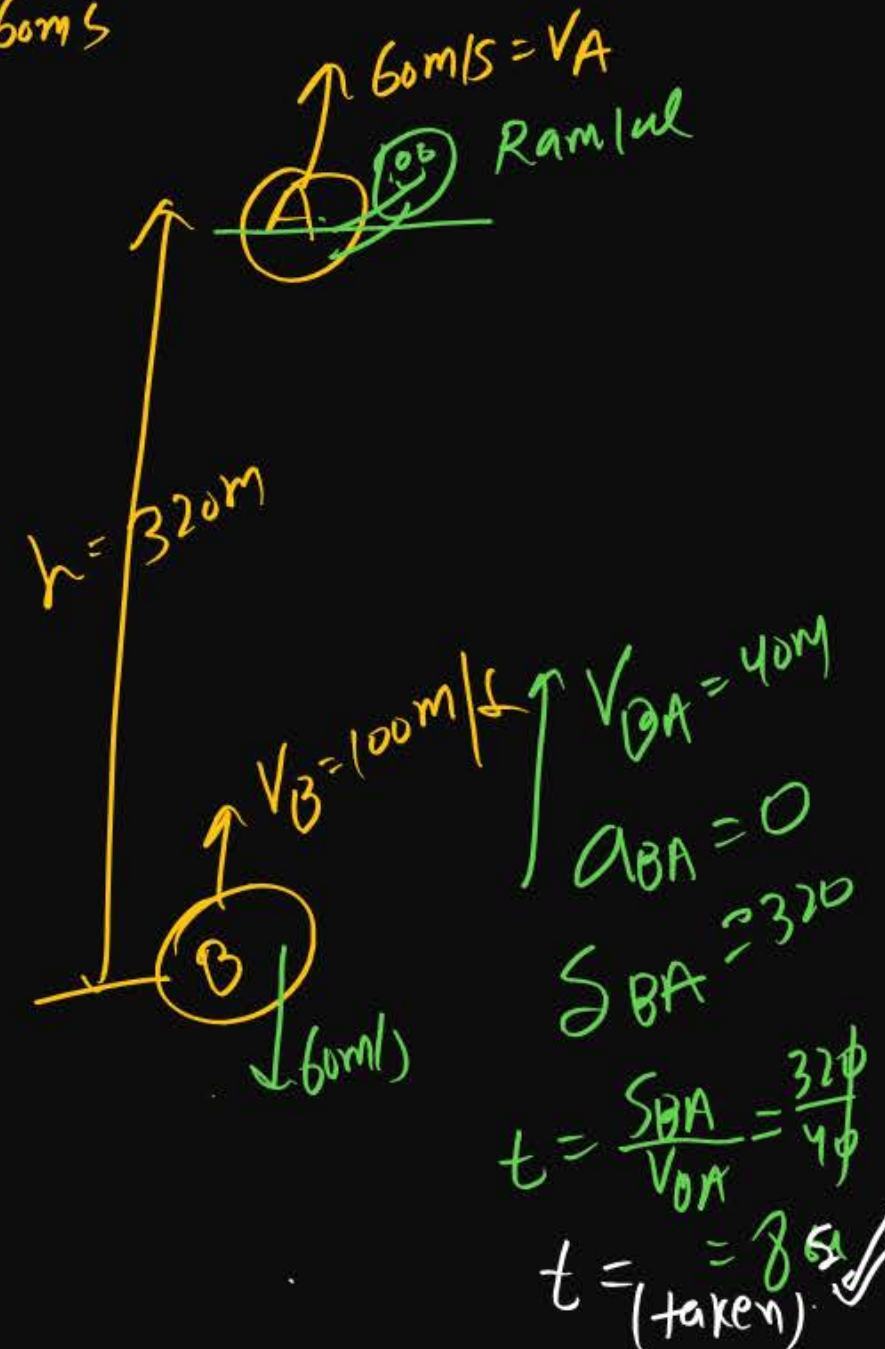 60m s
60m/s = VA
A
Ramlal
h = 320m
VB = 100m/s
B
60m/s
VBA = 40m
aBA = 0
SBA = 320
t = SBA/VBA = 320/40
= 8 s
t =
(taken)